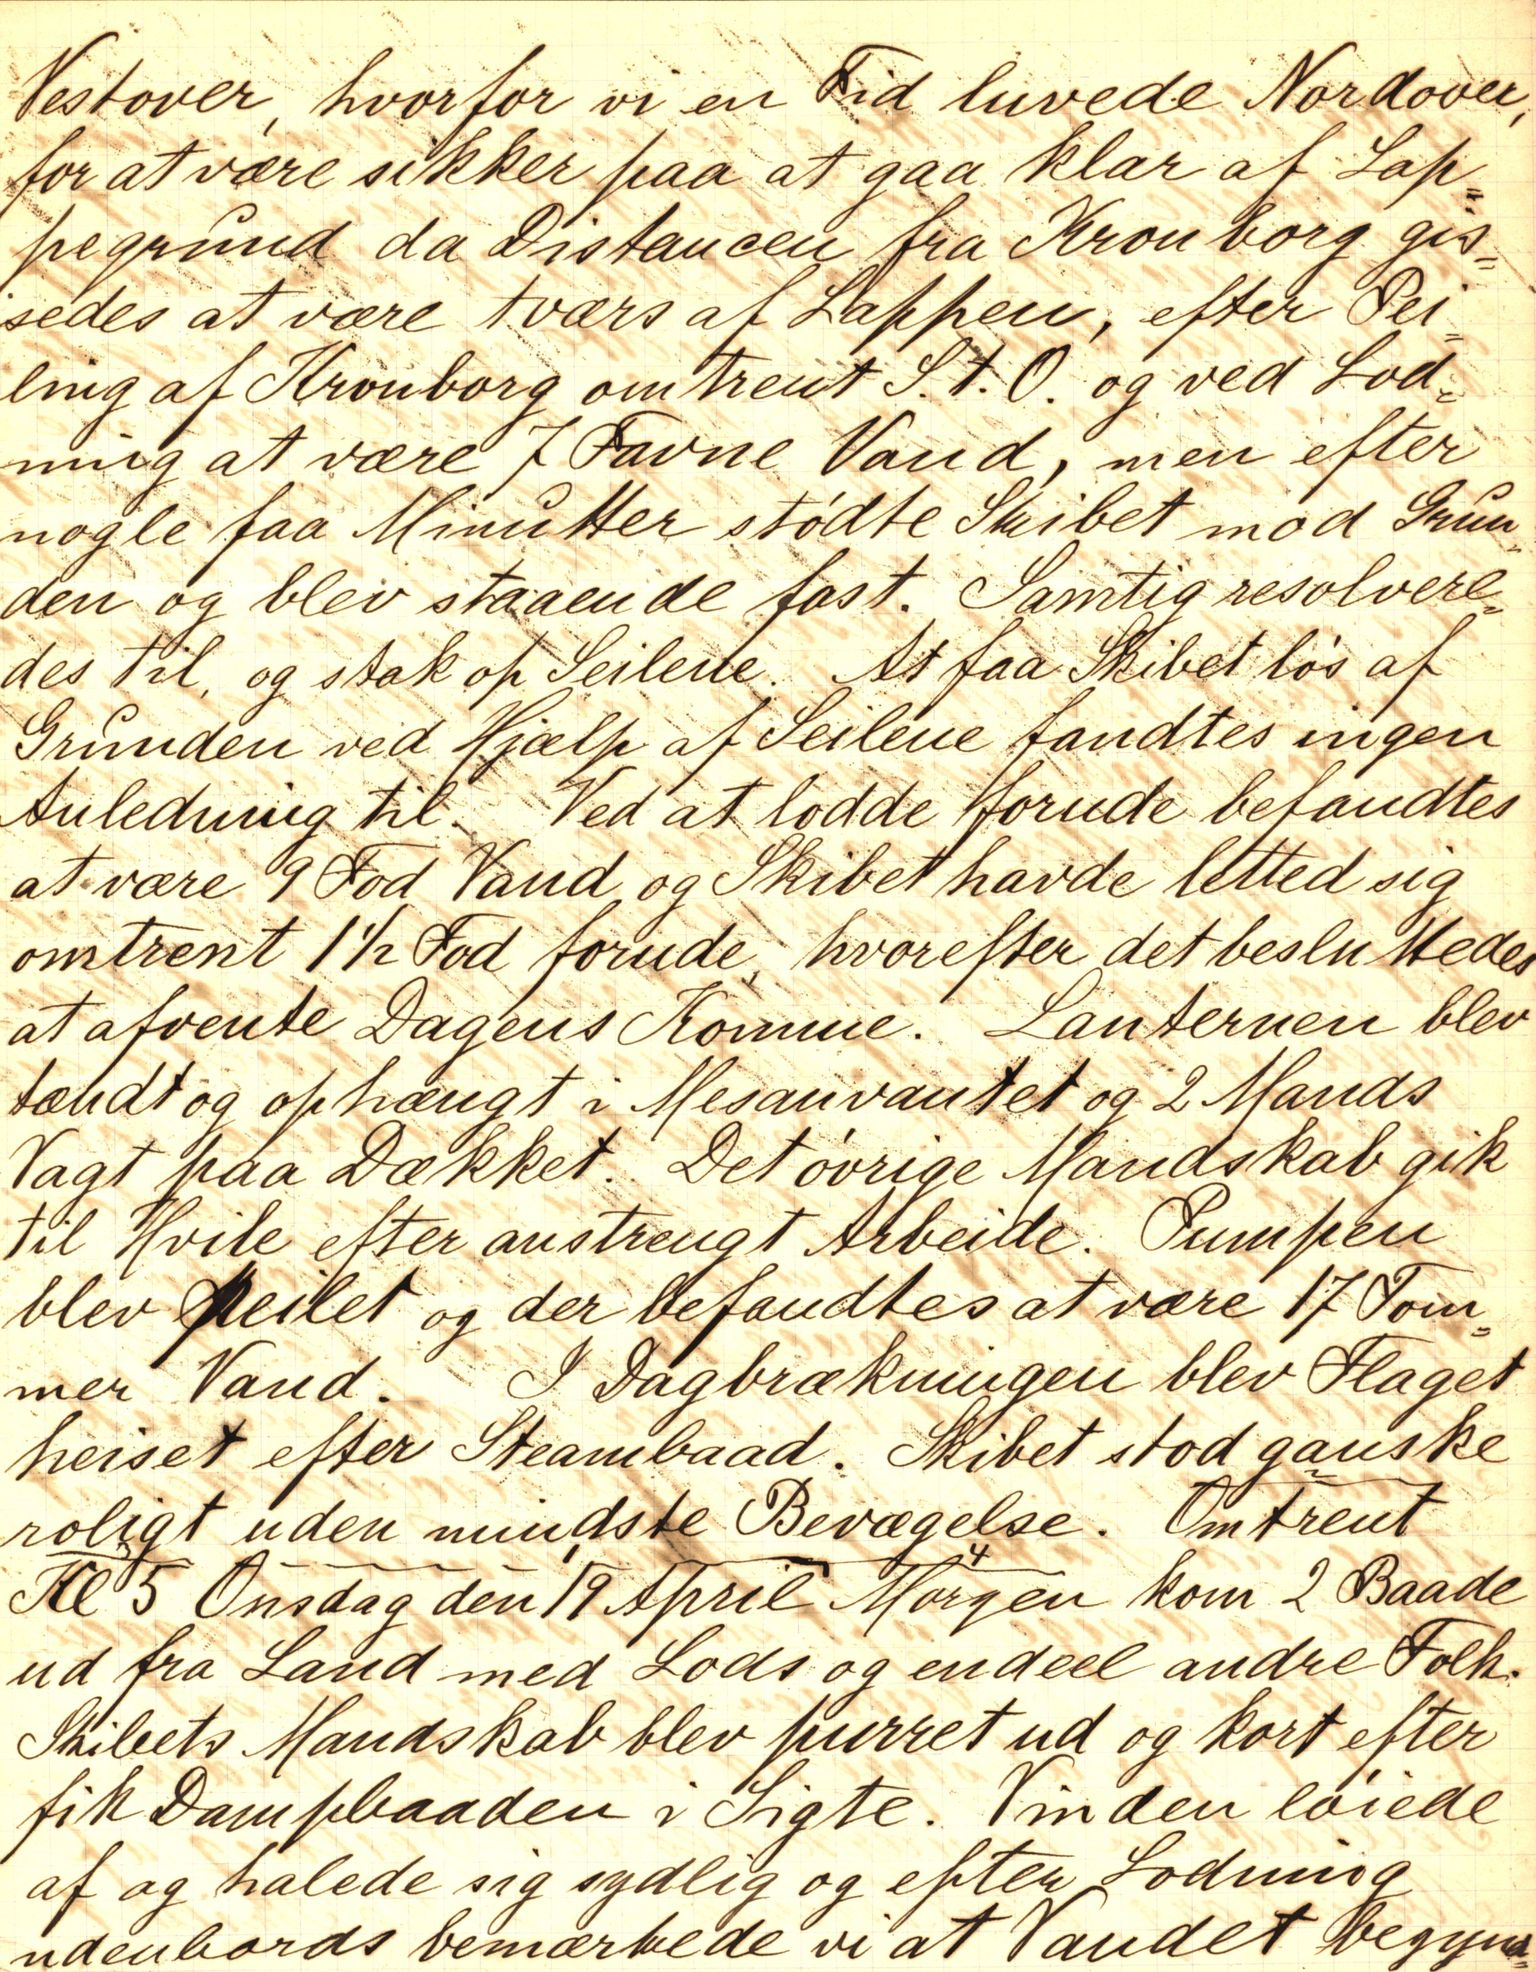 Vestover, hvorfor vi en Tid luvede Nordover,
for at være sikker paa at gaa klar af Lap=
pegrund da Distancen fra Kronborg gis=
sedes at være tværs af Lappen, efter Pei=
ling af Kronborg omtrent S.t.O. og ved Lod=
ning at være 7 Favne Vand, men efter
nogle faa Minutter stödte Skibet mod Grun=
den og blev staaende fast. Samtig resolvere=
des til, og stak op Seilene. At faa Skibet lös af
Grunden ved Hjælp af Seilene fandtes ingen
Anledning til. Ved at lodde forude befandtes
at være 9 Fod Vand og Skibet havde letted sig
omtrent 1 1/2 Fod forude, hvorefter det besluttedes
at afvente Dagens Komme. Lanternen blev
tændt og ophængt i Mesanvantet og 2 Mands
Vagt paa Dækket. Det övrige Mandskab gik
til Hvile efter anstrengt Arbeide. Pumpen
blev peilet og der befandtes at være 17 Tom=
mer Vand. I Dagbrækningen blev Flaget
heiset efter Steambaad. Skibet stod ganske
roligt uden mindste Bevægelse. Omtrent
Kl 5 Onsdag den 19 April Morgen kom 2 Baade
ud fra Land med Lods og endeel andre Folk.
Skibets Mandskab blev purret ud og kort efter
fik Dampbaaden i Sigte. Vinden löiede
af og halede sig sydlig og efter Lodning
udenbords bemærkede vi at Vandet begyn=